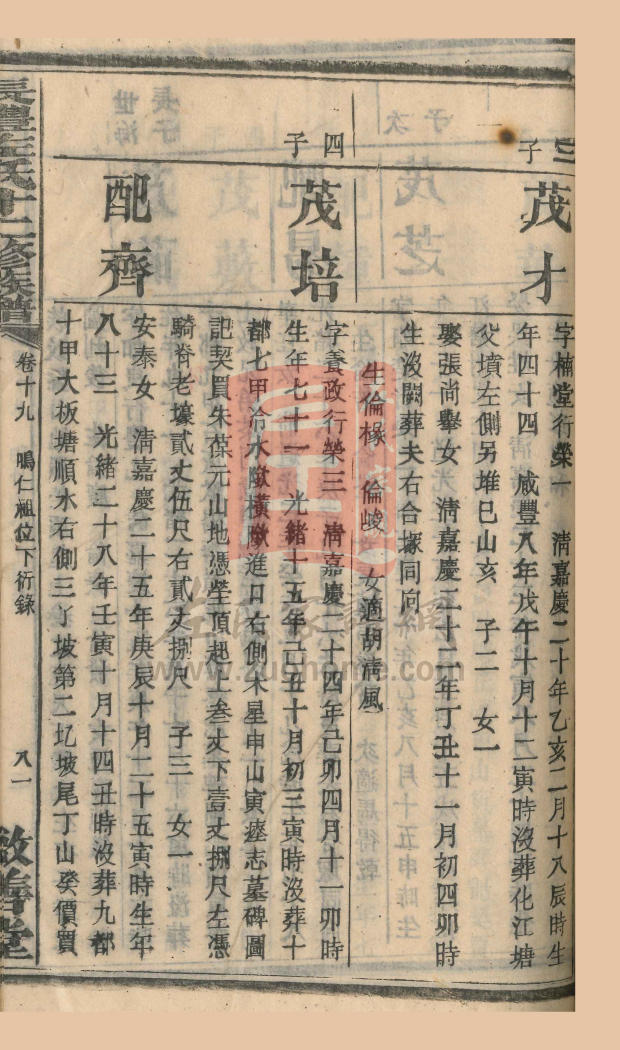 三子
茂才
字楠堂行榮一 淸嘉慶二十年乙亥二月十八辰時生
年四十四 咸豐八年戊午十月十二寅時沒葬化江塘
父墳左側另堆巳山亥 子二 女一
娶張尚舉女 淸嘉慶二十二年丁丑十一月初四卯時
生沒闕葬夫右合塚同向
生倫椽 倫峻 女適胡淸風
四子
茂培
字養政行榮三 淸嘉慶二十四年己卯四月十一卯時
生年七十一 光緒十五年己丑十月初三寅時沒葬十
都七甲冷水𡼏橫𡼏進口右側木星申山寅瘞志墓碑圖
記契買朱葆元山地憑塋頂起上叁丈下壹丈捌尺左憑
騎脊老壕貳丈伍尺右貳丈捌尺 子三 女一
配齊
安泰女 淸嘉慶二十五年庚辰十月二十五寅時生年
八十三 光緒二十八年壬寅十月十四丑時沒葬九都
十甲大板塘順水右側三丫坡第二圵坡尾丁山癸價買
長灃左氏十二修族譜 卷十九 鳴仁祖位下衍錄 八一 敦睦堂
www.zupuhome.com